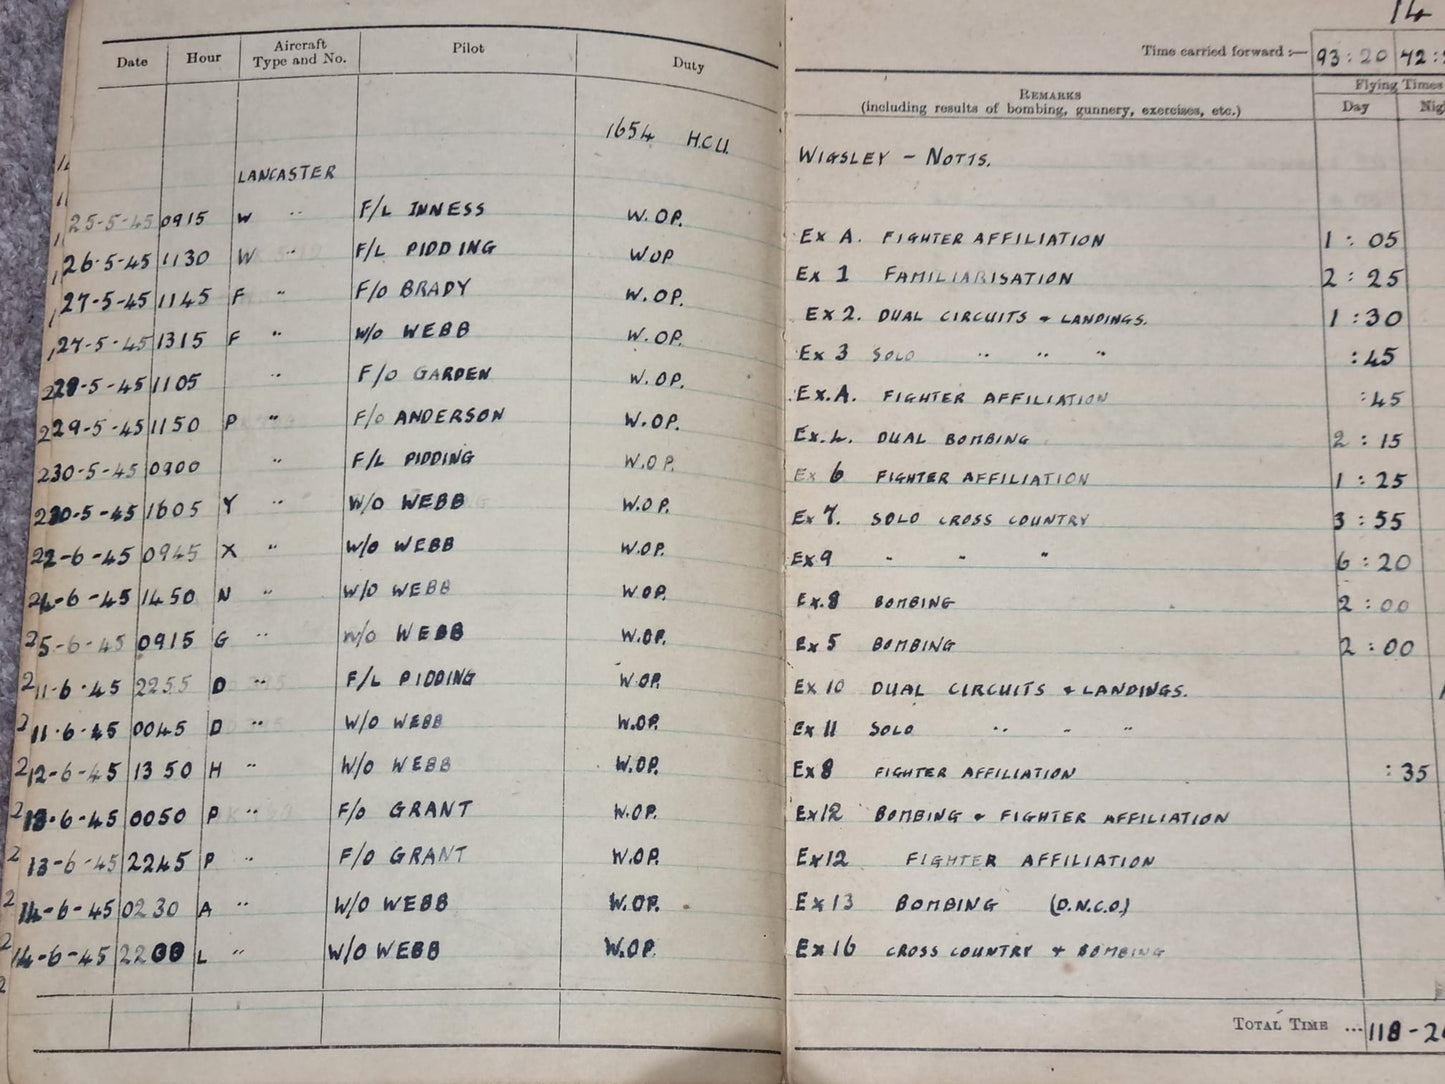 14
Date Hour Aircraft Type and No. Pilot Duty
Time carried forward :— 93:20 42:
REMARKS (including results of bombing, gunnery, exercises, etc.) Flying Times
Day
1654 H.C.U. WIGSLEY – NOTTS.
LANCASTER
25-5-45 0915 W " F/L INNESS W.OP. EX A. FIGHTER AFFILIATION 1:05
26-5-45 1130 W " F/L PIDDING WOP EX 1 FAMILIARISATION 2:25
27-5-45 1145 F " F/O BRADY W.OP. EX 2. DUAL CIRCUITS & LANDINGS. 1:30
27-5-45 1315 F " W/O WEBB W.OP. EX 3 SOLO " " " :45
29-5-45 1105 " F/O GARDEN W.OP. EX.A. FIGHTER AFFILIATION :45
29-5-45 1150 P " F/O ANDERSON W.OP. EX.4. DUAL BOMBING 2:15
30-5-45 0900 " F/L PIDDING W.OP. EX 6 FIGHTER AFFILIATION 1:25
30-5-45 1605 Y " W/O WEBB W.OP. EX 7. SOLO CROSS COUNTRY 3:55
2-6-45 0945 X " W/O WEBB W.OP. EX 9 " " " 6:20
4-6-45 1450 N " W/O WEBB W.OP. EX.8 BOMBING 2:00
5-6-45 0915 G " W/O WEBB W.OP. EX 5 BOMBING 2:00
11-6-45 2255 D " F/L PIDDING W.OP. EX 10 DUAL CIRCUITS & LANDINGS.
11-6-45 0045 D " W/O WEBB W.OP. EX 11 SOLO " " "
12-6-45 1350 H " W/O WEBB W.OP. EX 8 FIGHTER AFFILIATION :35
13-6-45 0050 P " F/O GRANT W.OP. EX12 BOMBING & FIGHTER AFFILIATION
13-6-45 2245 P " F/O GRANT W.OP. EX12 FIGHTER AFFILIATION
14-6-45 0230 A " W/O WEBB W.OP. EX 13 BOMBING (D.N.C.O.)
14-6-45 2200 L " W/O WEBB W.OP. EX 16 CROSS COUNTRY & BOMBING
TOTAL TIME ... 118-